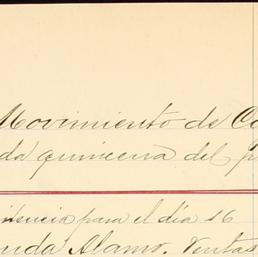 Movimiento de Co
da quincena del p
istencia para el día 16
uda Alamo. Ventas